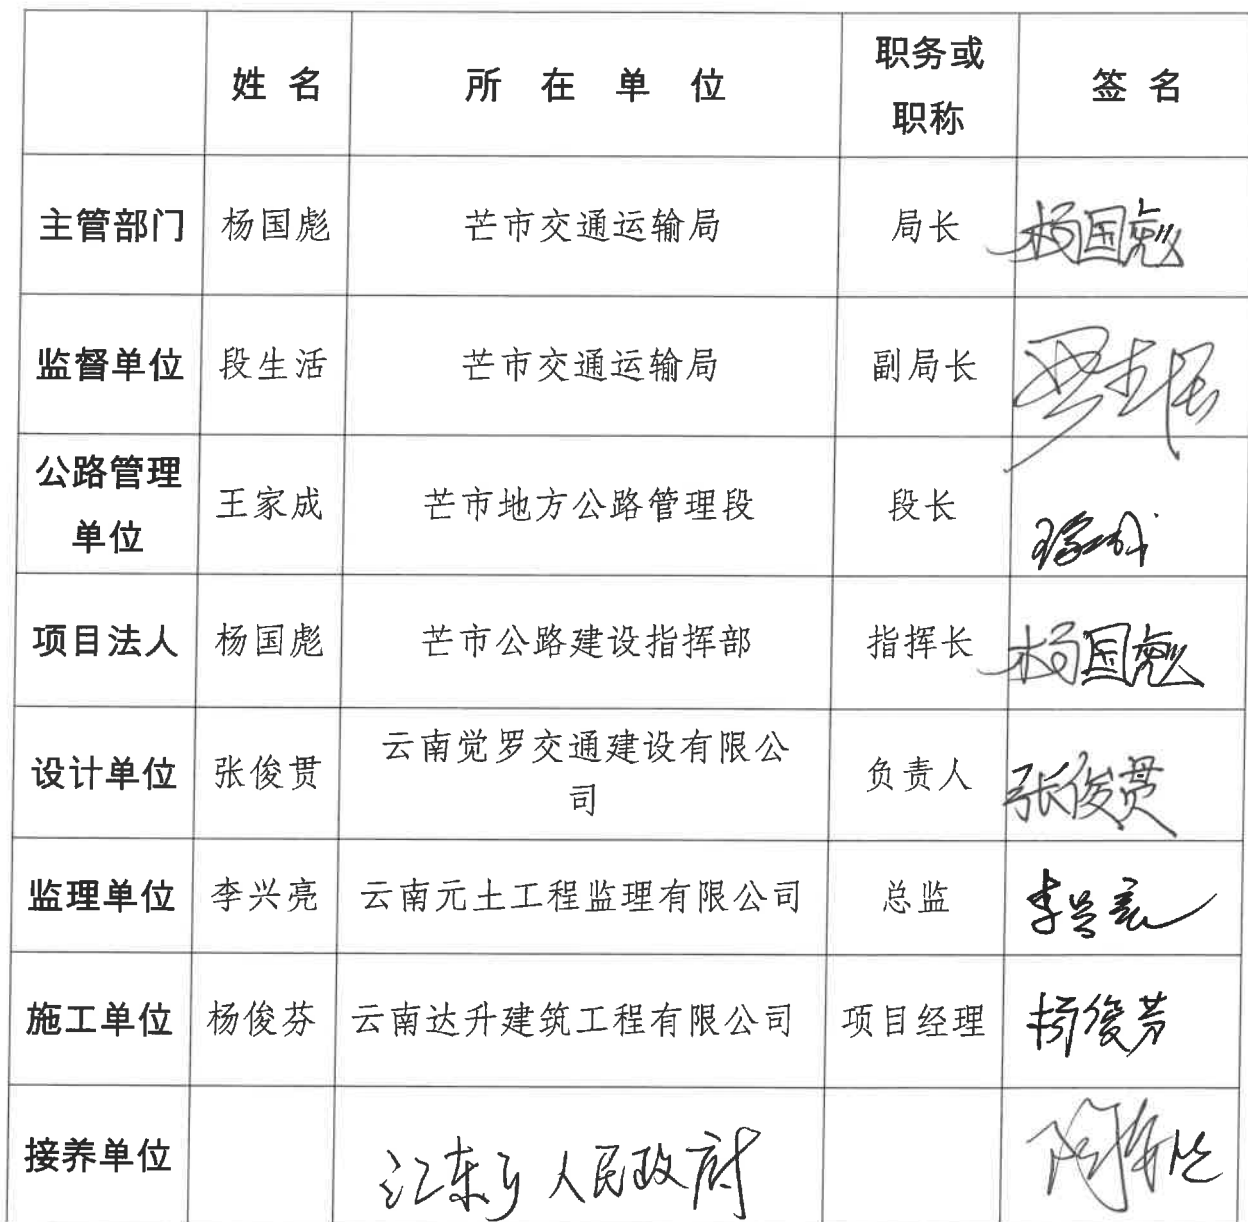 姓 名 所 在 单 位 职务或 签 名
职称
主管部门 杨国彪 芒市交通运输局 局长 杨国彪
监督单位 段生活 芒市交通运输局 副局长
公路管理
单位 王家成 芒市地方公路管理段 段长 王家成
项目法人 杨国彪 芒市公路建设指挥部 指挥长 杨国彪
设计单位 张俊贯 云南觉罗交通建设有限公 负责人 张俊贯
司
监理单位 李兴亮 云南元土工程监理有限公司 总监 李兴亮
施工单位 杨俊芬 云南达升建筑工程有限公司 项目经理 杨俊芬
接养单位 江东乡人民政府